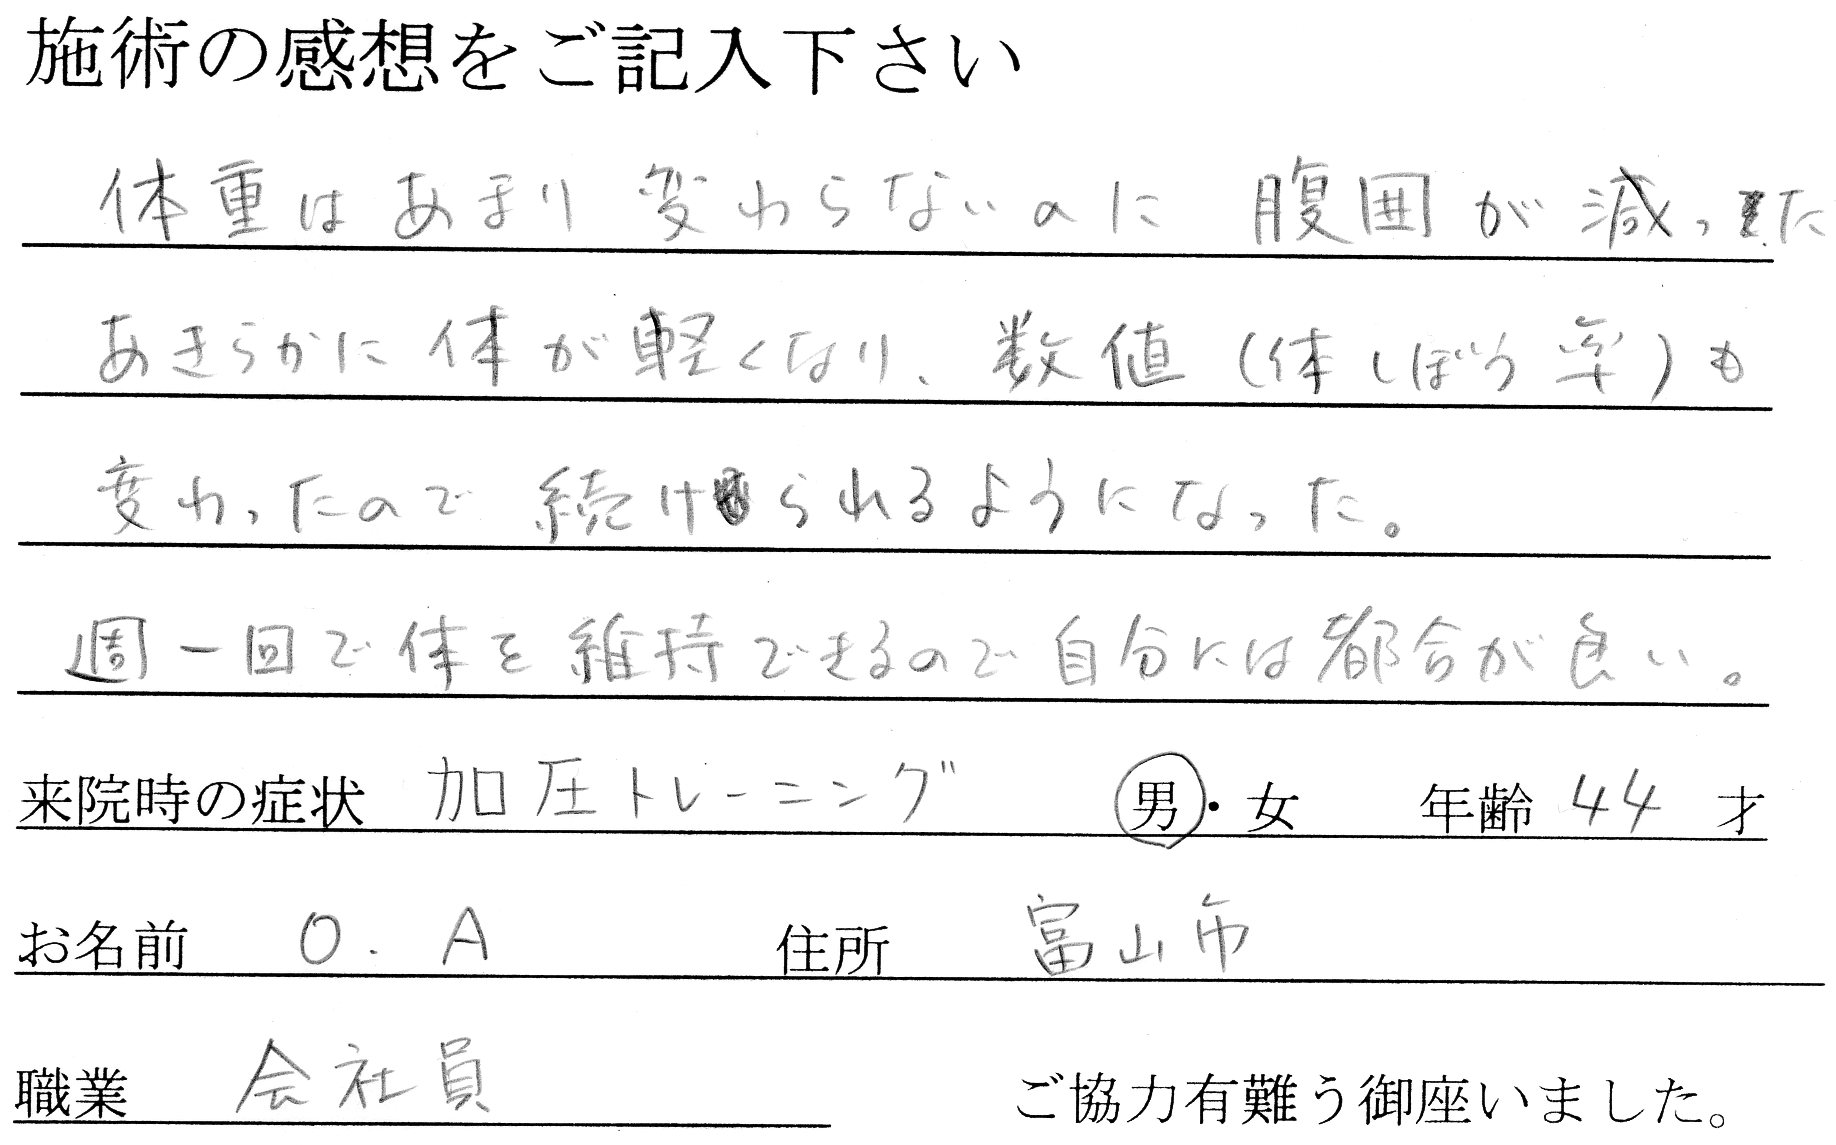 施術の感想をご記入下さい
体重はあまり変わらないのに 腹囲が減った
あきらかに体が軽くなり、数値（体しぼう率）も
変わったので続けられるようになった。
週一回で体を維持できるので自分には都合が良い。
来院時の症状 加圧トレーニング 男・女 年齢 44 才
お名前 O. A 住所 富山市
職業 会社員 ご協力有難う御座いました。